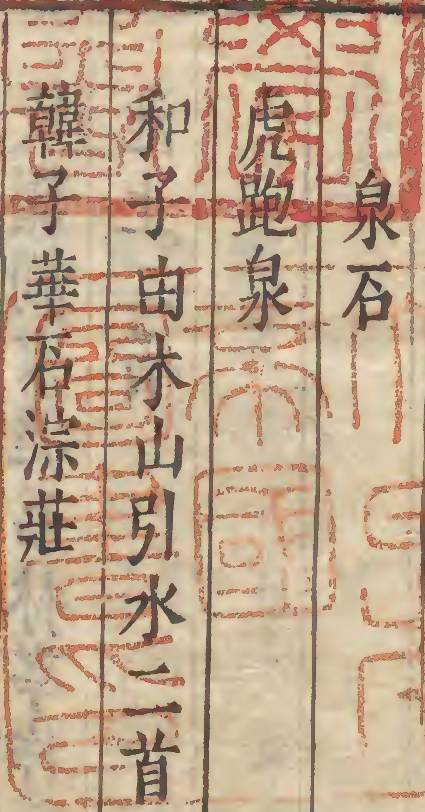 泉石
虎跑泉
和子由木山引水二首
韓子華石淙莊